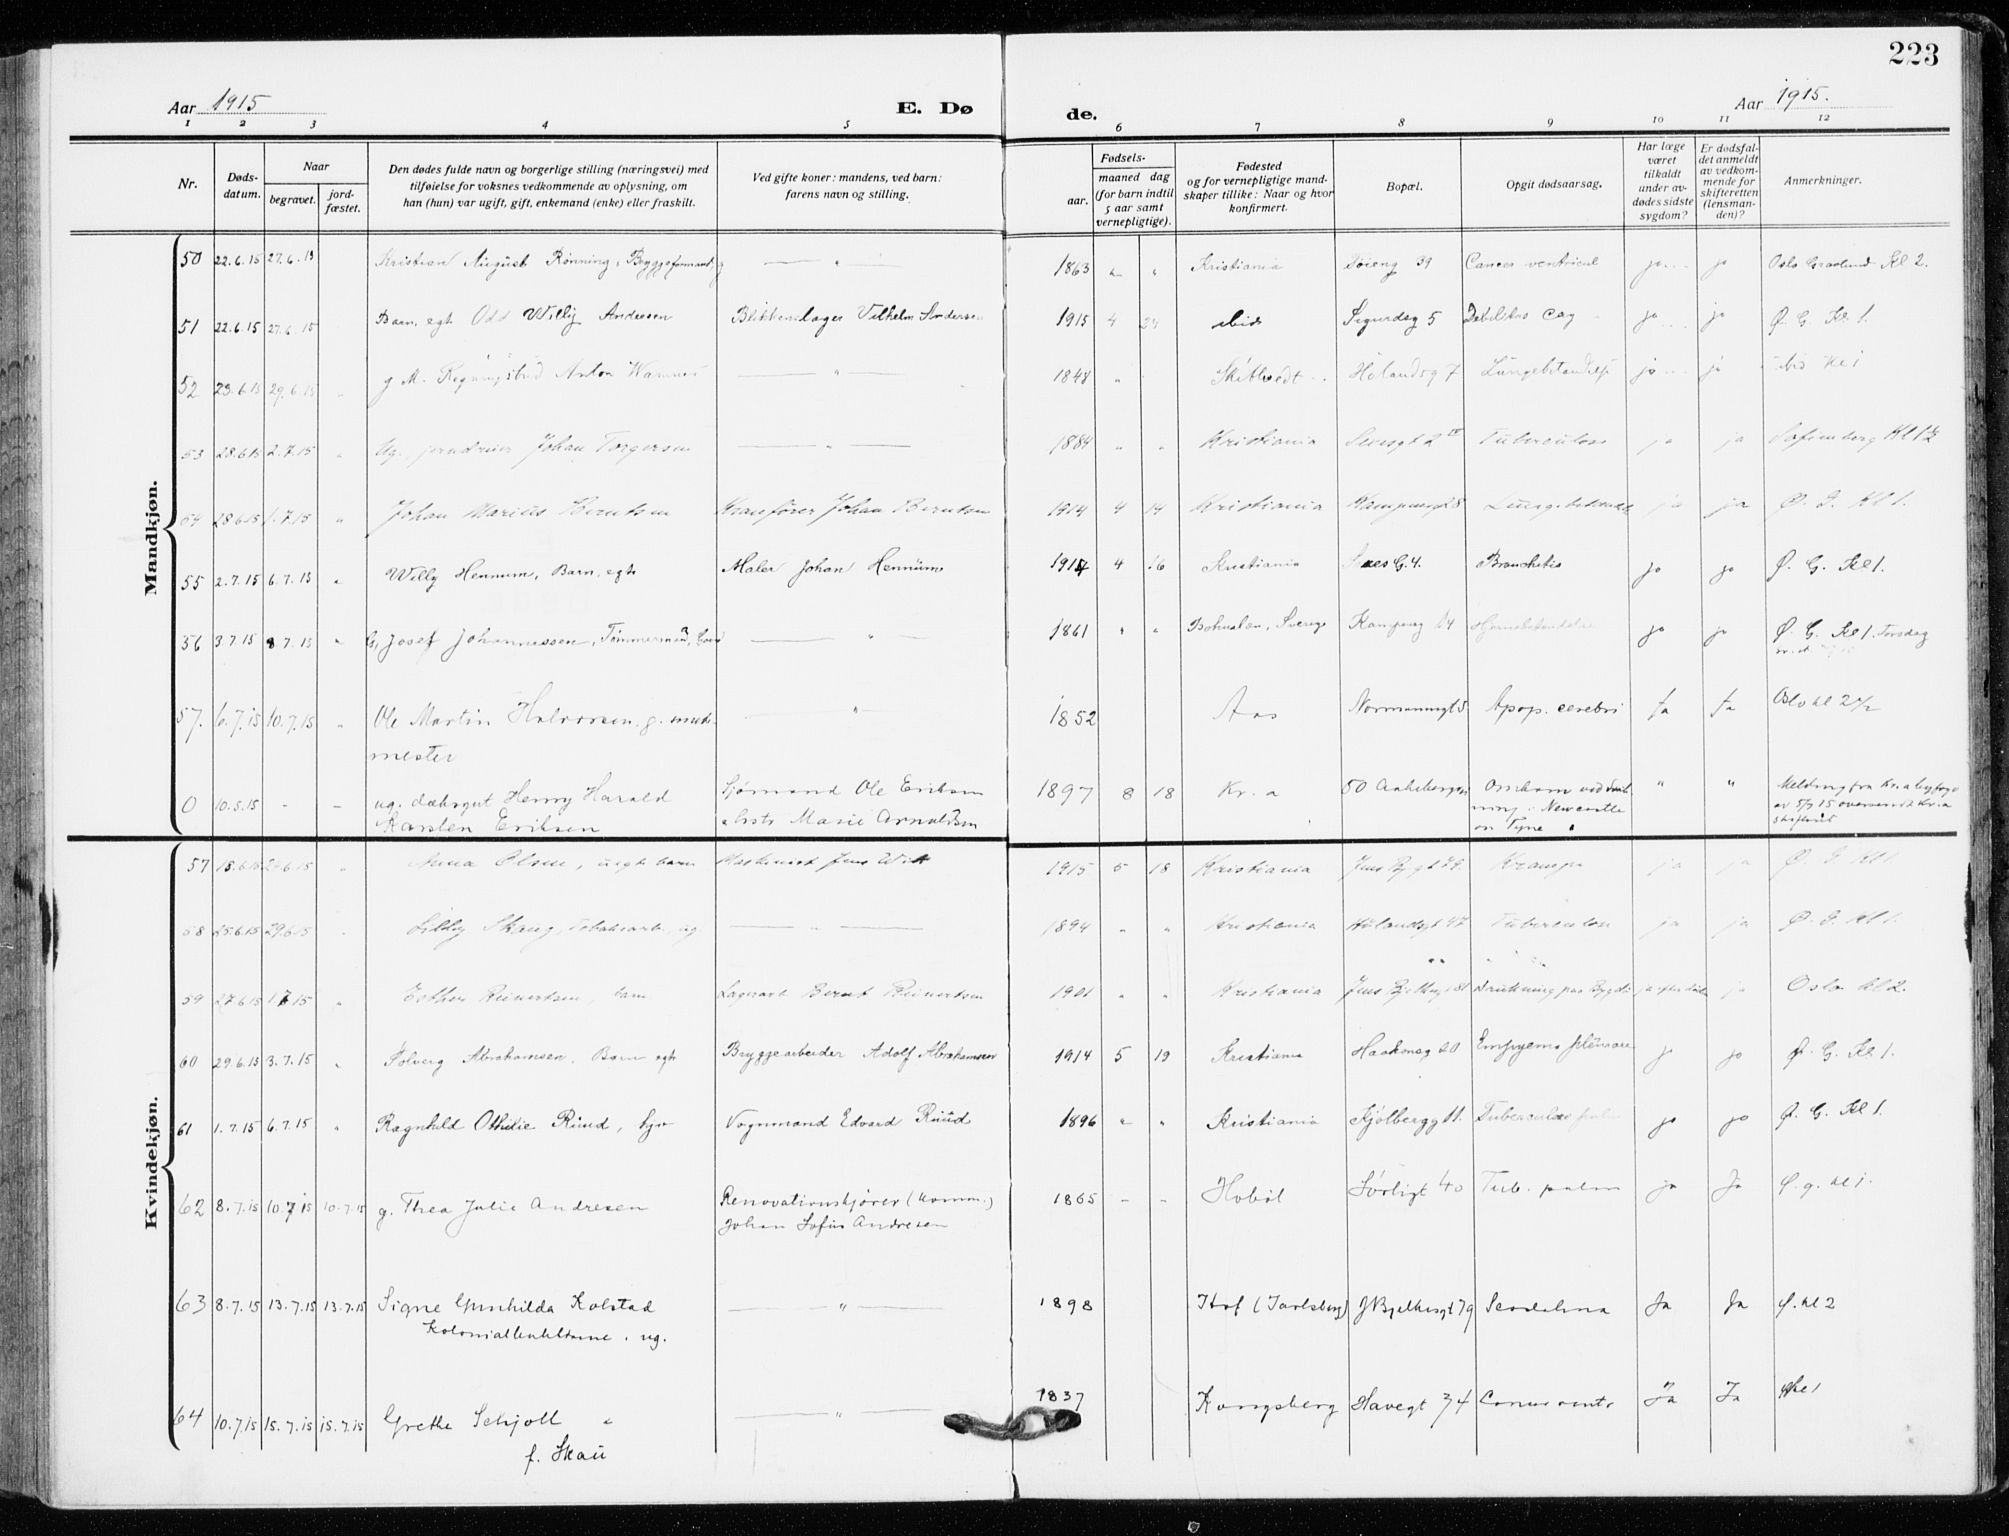 223
Aar 1915
E. Dø
de.
Aar 1915.
1 2 3 4 5 6 7 8 9 10 11 12
Nr.
Døds-
datum.
Naar
begravet.
jord-
fæstet.
Den dødes fulde navn og borgerlige stilling (næringsvei) med
tilføielse for voksnes vedkommende av oplysning, om
han (hun) var ugift, gift, enkemand (enke) eller fraskilt.
Ved gifte koner: mandens, ved barn:
farens navn og stilling.
Fødsels-
aar.
maaned dag
(for barn indtil
5 aar samt
vernepligtige).
Fødested
og for vernepligtige mand-
skaper tillike: Naar og hvor
konfirmert.
Bopæl.
Opgit dødsaarsag.
Har læge
været
tilkaldt
under av-
dødes sidste
sygdom?
Er dødsfal-
det anmeldt
av vedkom-
mende for
skifteretten
(lensman-
den)?
Anmerkninger.
Mandkjøn.
50 22.6.15 27.6.15 Kristian August Rønning, Bryggeformand, g — " — 1863 " " Kristiania 39 Cancer ventricul ja ja Oslo Gravlund Kl 2.
51 22.6.15 27.6.15 Barn, egt. Odd Willy Andersen Blikkenslager Vilhelm Andersen 1915 4 ibid Sigurdsg 5 ja ja Ø. G. Kl 1.
52 23.6.15 29.6.15 g M. Anton — " — 1848 " Skibtvedt Hølandsg 7 ja ja ibid Kl 1
53 28.6.15 2.7.15 " Ug. Johan Torgersen — " — 1884 " " Kristiania Tuberculose ja ja Sofienberg Kl 1½
54 28.6.15 1.7.15 " Johan Marius Berntsen Kranfører Johan Berntsen 1914 4 14 Kristiania ja ja Ø. G. Kl 1.
55 2.7.15 6.7.15 " Willy Hennum, Barn, egt. Maler Johan Hennum 1914 4 16 Kristiania G. 4. Bronchitis ja ja Ø. G. Kl 1.
56 3.7.15 8.7.15 " Josef Johannessen, Tømmermand — " — 1861 " " Bohuslen, Sverige Kampeng 14 ja ja Ø. G. Kl 1. Torsdag
57. 6.7.15 10.7.15 " Ole Martin Halvorsen, g. — " — 1852 Aas Normannsgt 5 Apop. cerebri Ja Ja Oslo kl 2½
mester
0 10.5.15 - - ug. dæksgut Henry Harald Sjømand Ole Eriksen 1897 8 18 Kr.a 50 Aakebergvn Omkom ved " " Melding fra Kr.a byfogd
Karsten Eriksen Marie Arnoldsen Newcastle av 5/7 15 oversendt Kr.a
on Tyne skifteret
Kvindekjøn.
57 18.6.15 " Anna Olsen, uegte barn Maskinist Jens 1915 5 18 Kristiania 79. Krampe ja ja Ø. G. Kl 1.
58 25.6.15 29.6.15 Lilly Skaug, ug. — " — 1894 " " Kristiania Hølandsgt 47 Tuberculose ja ja Ø. G. Kl 1.
59 27.6.15 1.7.15 " Esther Reinertsen, barn Lagerarb Bernt Reinertsen 1901 " " Kristiania Drukning paa Bygdø ja Oslo kl 2.
60 29.6.15 3.7.15 " Solveig Abrahamsen, Barn egt. Bryggearbeider Adolf Abrahamsen 1914 5 19 Kristiania Haakonsg 20 Empyema pleurae ja ja Ø. G. Kl 1.
61 1.7.15 6.7.15 " Ragnhild Othilie Ruud, Vognmand Edvard Ruud 1896 " " Kristiania Kjølbergg 11. Tuberculos pulm ja ja Ø. G. Kl 1.
62 8.7.15 10.7.15 10.7.15 g. Thea Julie Andresen Renovationskjører (komm.) 1865 - - Hobøl Sørligt 40 Tub. pulm ja Ja Ø. g. kl 1.
Johan Sofus Andresen
63 8.7.15 13.7.15 13.7.15 Signe Gunhilda Kolstad — " — 1898 Hof (Jarlsberg) J Bjelkesgt 79 Ja Ja Ø. kl 2
ug.
64 10.7.15 15.7.15 15.7.15 Grethe Schjøll — " — 1837 Kongsberg Havegt 34 Ja Ja Ø kl 1
f. Skau